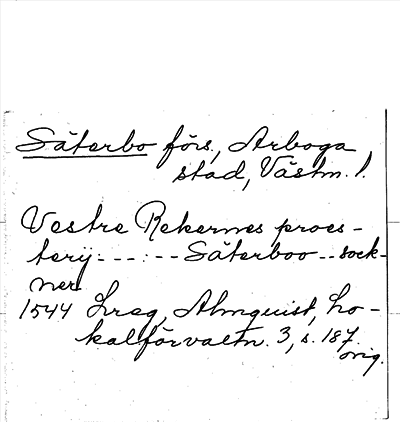 Säterbo förs., Arboga
stad, Västm. l.
Vestre Rekernes proes-
terij - - - : - - Säterboo - - sock-
ner
1544 hreg, Almquist, Lo-
kalförvaltn. 3, s. 187.
orig.